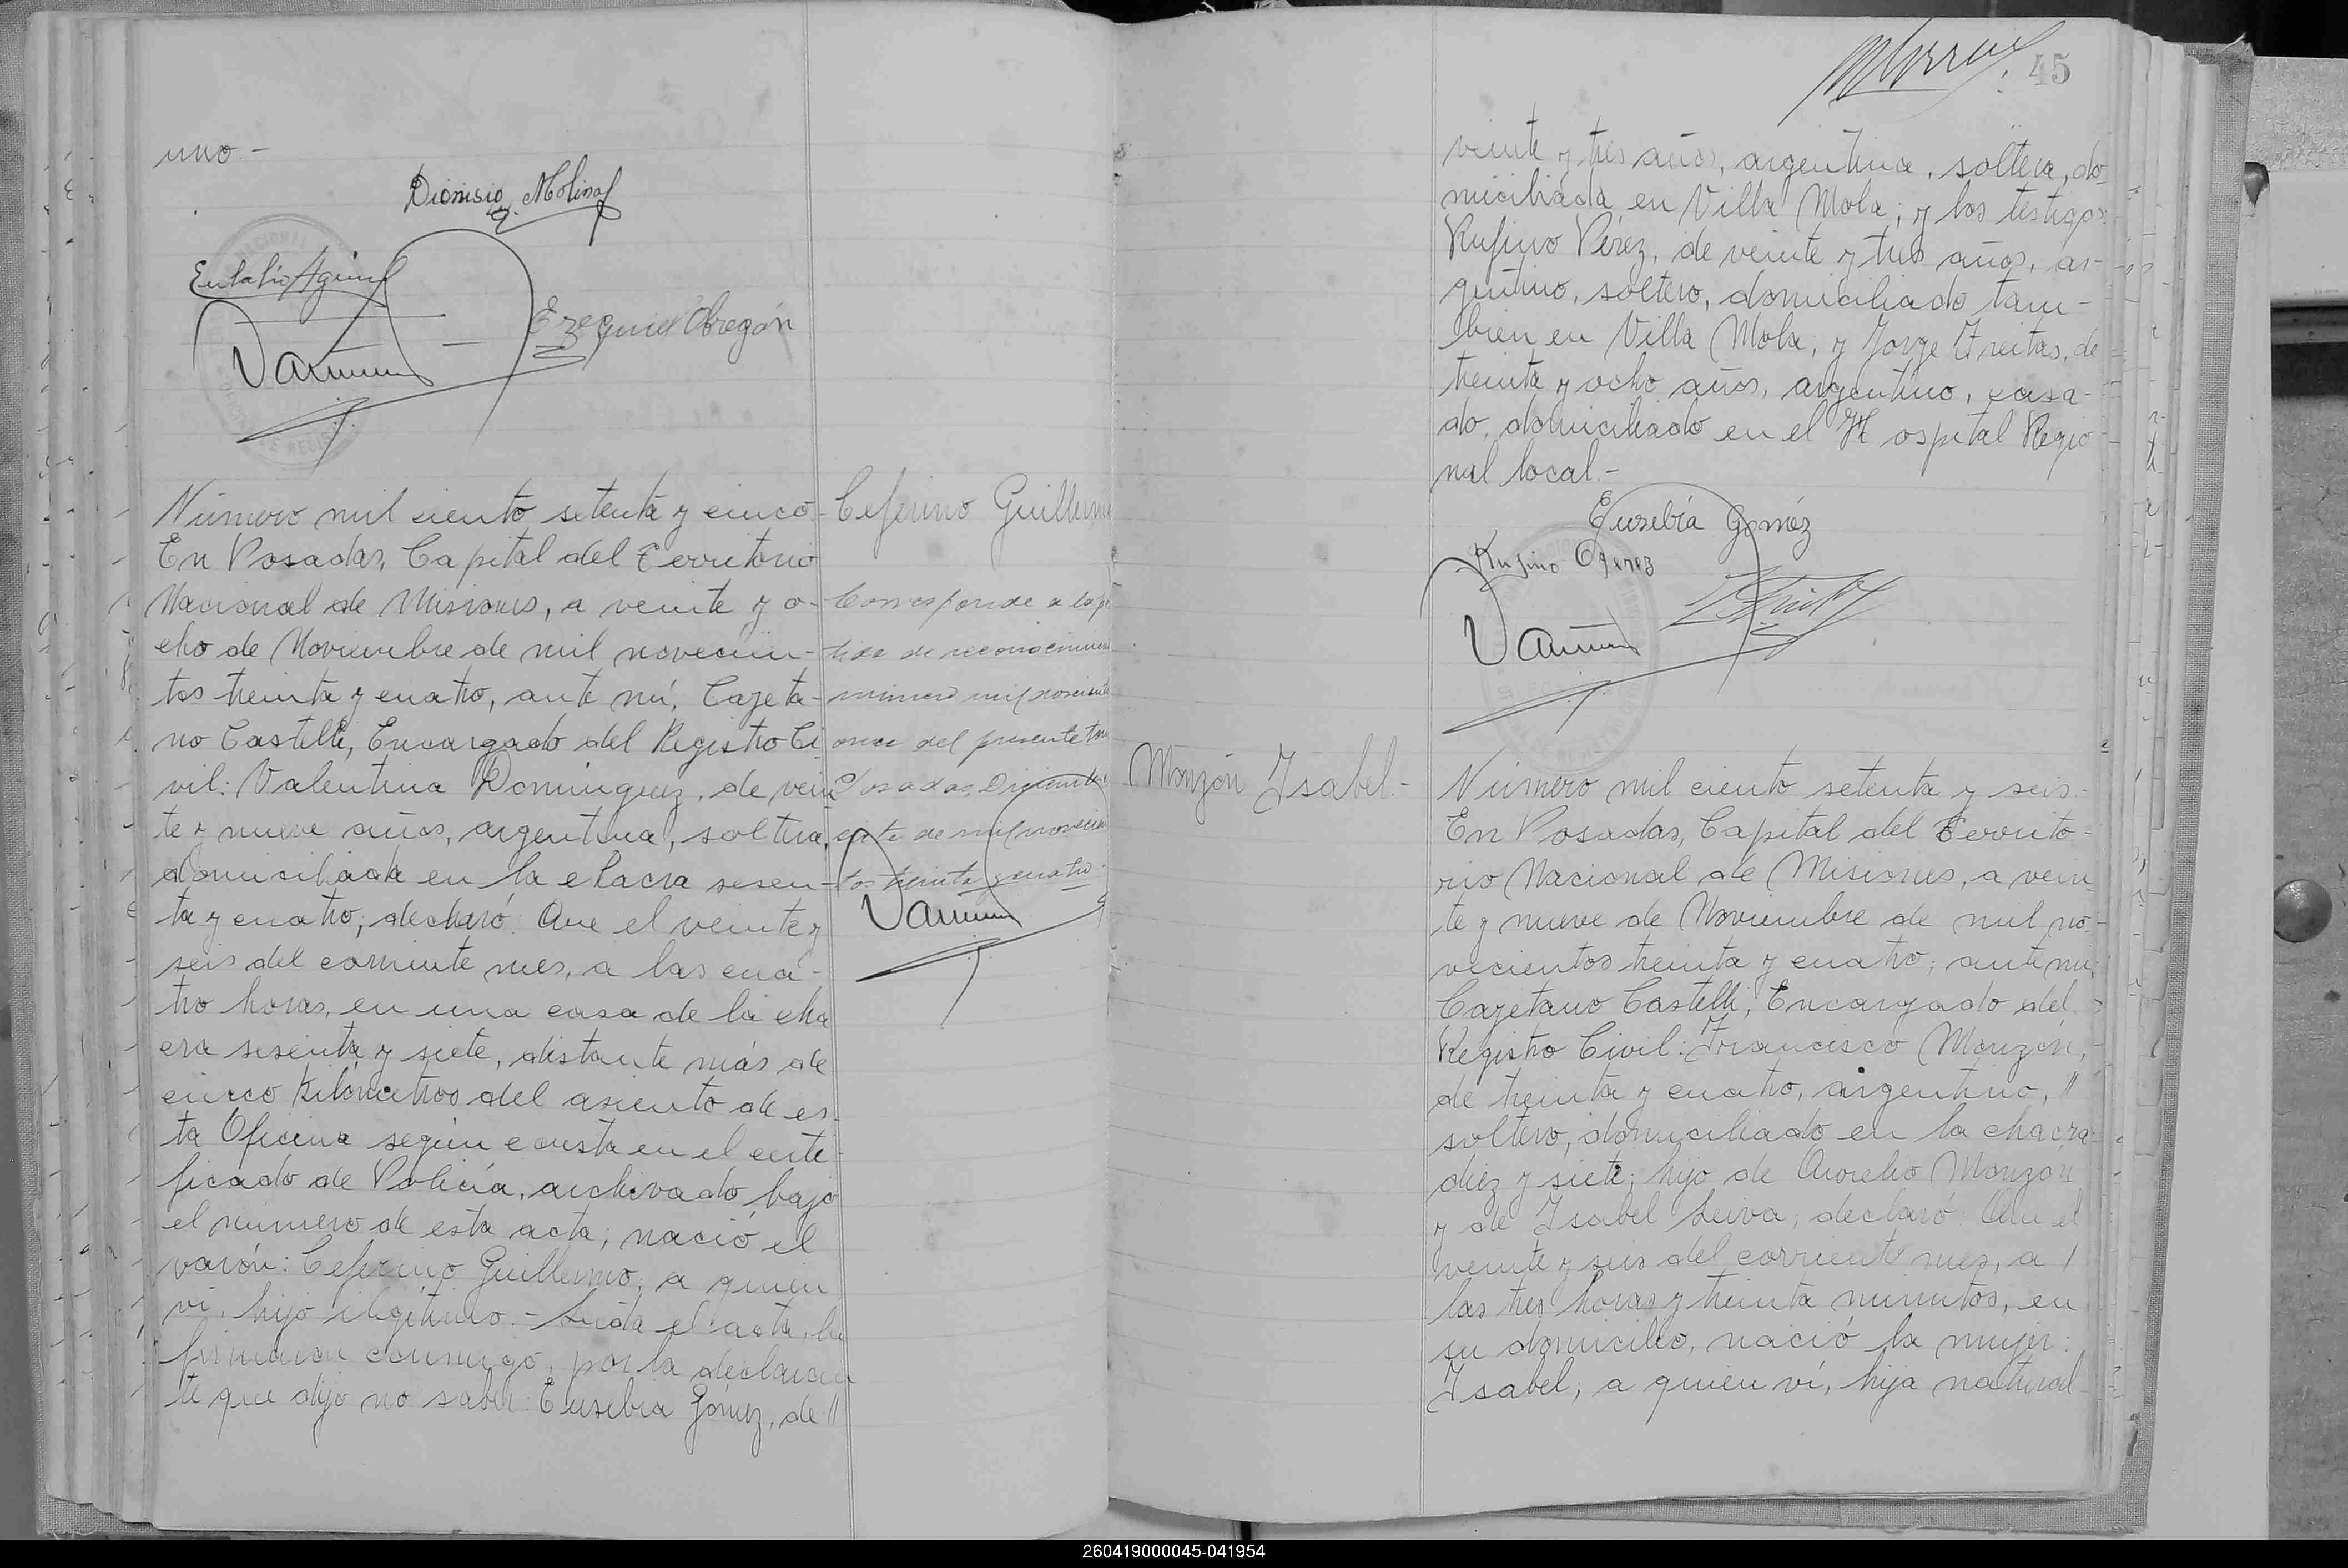 uno.-
Dionisio Molina
Eulalio Aguirre
Ezequiel Obregón
Número mil ciento setenta y cinco-
En Posadas, Capital del Territorio
Nacional de Misiones, a veinte y o-
cho de Noviembre de mil novecien-
tos treinta y cuatro, ante mí, Cayeta-
no Castelli, Encargado del Registro Ci
vil: Valentina Dominguez, de vein
te y nueve años, argentina, soltera,
domiciliada en la chacra sesen-
ta y cuatro; declaró: Que el veinte y
seis del corriente mes, a las cua-
tro horas, en una casa de la cha
cra sesenta y siete, distante más de
cinco kilómetros del asiento de es-
ta Oficina según consta en el certi-
ficado de Policía, archivado bajo
el número de esta acta; nació el
varón: Ceferino Guillermo; a quien
ví, hijo ilegítimo.- Leída el acta, la
firmaron conmigo, por la declaran
te que dijo no saber: Eusebia Gómez, de //
Ceferino Guillermo
Corresponde a la par
tida de reconocimien
número mil doscientos
once del presente tomo
Posadas, Diciembre
siete de mil novecien
tos treinta y cuatro.-
45
veinte y tres años, argentina, soltera, do-
miciliada en Villa Mola; y los testigos:
Rufino Pérez, de veinte y tres años, ar-
gentino, soltero, domiciliado tam-
bien en Villa Mola; y Jorge Freitas, de
treinta y ocho años, argentino, casa-
do, domiciliado en el Hospital Regio-
nal local.-
Eusebia Goméz
Rufino Perez
Monzón Isabel.-
Número mil ciento setenta y seis.-
En Posadas, Capital del Territo-
rio Nacional de Misiones, a vein-
te y nueve de Noviembre de mil no-
vecientos treinta y cuatro; ante mí,
Cayetano Castelli, Encargado del
Registro Civil: Francisco Monzón,
de treinta y cuatro, argentino, //
soltero, domiciliado en la chacra
diez y siete; hijo de Aurelio Monzón
y de Isabel Leiva; declaró: Que el
veinte y seis del corriente mes, a /
las tres horas y treinta minutos, en
su domicilio, nació la mujer:
Isabel; a quien ví, hija natural
260419000045-041954